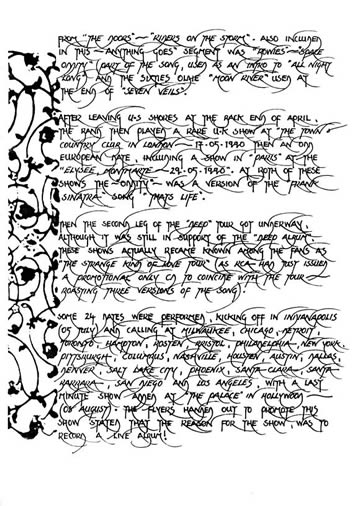 FROM "THE DOORS" - "RIDERS ON THE STORM". ALSO INCLUDED
IN THIS - ANYTHING GOES" SEGMENT WAS "BOWIES" - "SPACE
ODDITY" (PART OF THE SONG, USED AS AN INTRO TO "ALL NIGHT
LONG) AND THE SIXTIES OLDIE "MOON RIVER" USED AT
THE END OF "SEVEN VEILS".
AFTER LEAVING U.S SHORES AT THE BACK END OF APRIL.
THE BAND THEN PLAYED A RARE U.K SHOW AT "THE TOWN &
COUNTRY CLUB IN LONDON - 17.05.1990 THEN AN ODD
EUROPEAN DATE, INCLUDING A SHOW IN "PARIS" AT THE
"ELYSEE MONTMARTE - 29.05.1990". AT BOTH OF THESE
SHOWS THE - ODDITY - WAS A VERSION OF THE "FRANK
SINATRA" SONG "THATS LIFE".
THEN THE SECOND LEG OF THE "NEED" TOUR GOT UNDERWAY.
ALTHOUGH IT WAS STILL IN SUPPORT OF THE "NEED ALBUM"
THESE SHOWS ACTUALLY BECAME KNOWN AMONG THE FANS AS
"THE STRANGE KIND OF LOVE TOUR" (AS RCA HAD JUST ISSUED
A PROMOTIONAL ONLY CD TO COINCIDE WITH THE TOUR -
BOASTING THREE VERSIONS OF THE SONG).
SOME 24 DATES WERE PERFORMED, KICKING OFF IN INDIANAPOLIS
(OF JULY) AND CALLING AT MILWAUKEE, CHICAGO, DETROIT,
TORONTO, HAMPTON, BOSTON, BRISTOL, PHILADELPHIA, NEW YORK.
PITTSBURGH, COLUMBUS, NASHVILLE, HOUSTEN, AUSTIN, DALLAS,
DENVER, SALT LAKE CITY, PHOENIX, SANTA CLARA, SANTA
BARBARIA, SAN DIEGO AND LOS ANGELES, WITH A LAST
MINUTE SHOW ADDED AT "THE PALACE" IN HOLLYWOOD
(OF AUGUST). THE FLYERS HANDED OUT TO PROMOTE THIS
SHOW STATED THAT THE REASON FOR THE SHOW, WAS TO
RECORD A LIVE ALBUM!